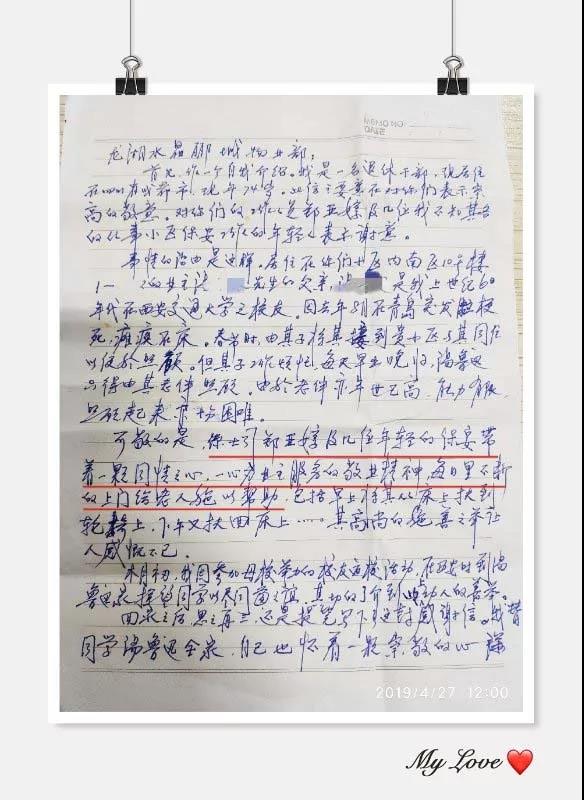 MEMO NO.
DATE
龙湖水晶郦城物业部:
首先作一个自我介绍。我是一名退休干部,现居住
在四川省成都市,现年74岁。此信主要意在对你们表示崇
高的敬意。对你们的工作人员郑亚嫜及几位我不知其名
的从事小区保安工作的年轻人表示谢意。
事情的治由是这样。居住在你们小区内南区10号楼
1- 的业主 先生的父亲, 是我上世纪60
年代在西安交通大学之校友,因去年8月在青岛突发脑梗
死,瘫痪在床。春节时,由其子将其接到贵小区与其同住
以便于照顾。但其子工作烦忙,每天早出晚归,
只得由其老伴照顾。由于老伴亦年世已高,能力有限,
照顾起来十分困难。
可敬的是,保 郑亚嫜及几位年轻的保安带
着一颗同情之心,一心为业主服务的敬业精神,每日里不断
的上门给老人施以帮助,包括早上将其从床上扶到
轮椅上,下午又扶回床上……其高尚的施善之举让
人感慨不已。
本月初,我因参加母校举办的校友返校活动,在西安时到
鲁迅家探望同学以尽同窗之谊,其切的了解到此动人的善举。
回家之后,思之再三,还是提笔写下这封感谢信。我替
同学 鲁迅全家,自己也怀着一颗崇敬的心
2019/4/27 12:00
My Love